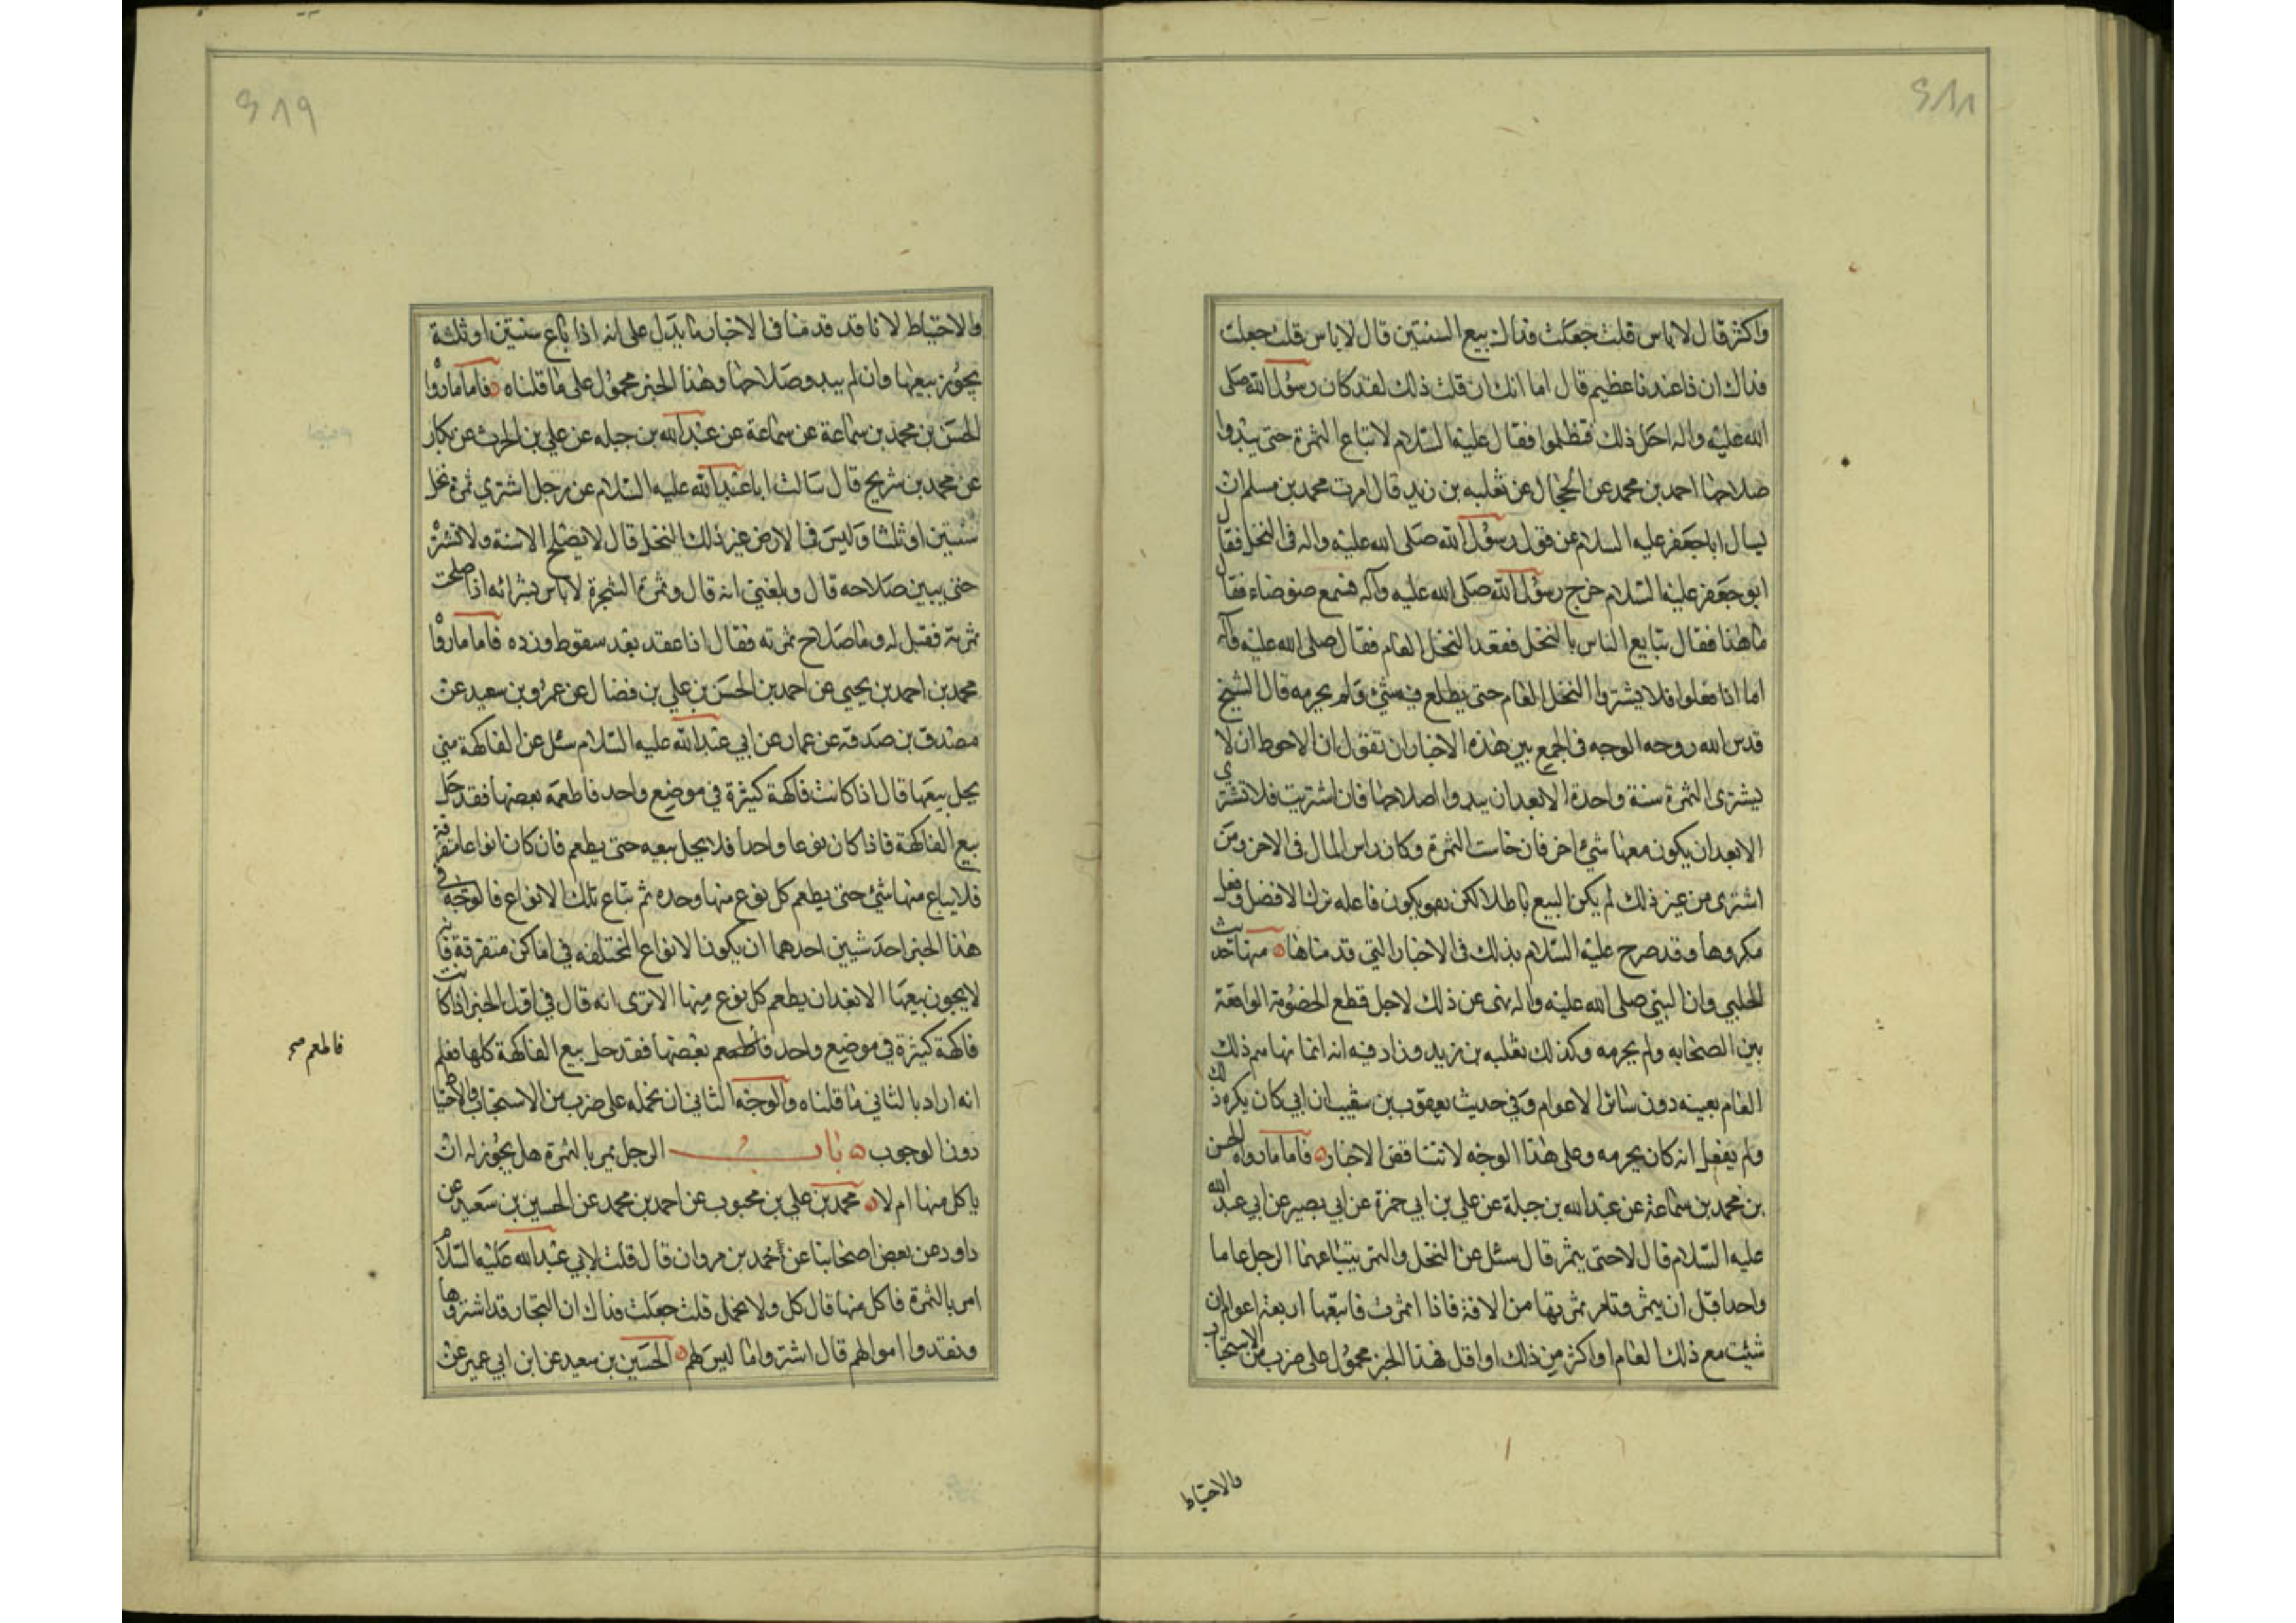 واكثر قال لا باس قلت جعلت فداك بيع السنتين قال لا باس قلت جعلت
فداك ان ذا عندنا عظيم قال اما انك ان قلت ذلك لقد كان رسول الله صلى
الله عليه واله احل ذلك فتظلموا فقال عليه السلام لا تباع الثمرة حتى يبدوا
صلاحها احمد بن محمد عن الحجال عن ثعلبه بن زيد قال امرت محمد بن مسلم ان
يسال ابا جعفر عليه السلام عن قول رسول الله صلى الله عليه واله في النخل فقال
ابو جعفر عليه السلام خرج رسول الله صلى الله عليه وآله فسمع ضوضاء فقال
ما هذا فقال تبايع الناس بالنخل فقعد النخل العام فقال صلى الله عليه وآله
اما اذا فعلوا فلا يشتروا النخل العام حتى يطلع فيه شيء ولم يحرمه قال الشيخ
قدس الله روحه الوجه في الجمع بين هذه الاخبار ان نقول ان الاحوط ان لا
يشترى الثمرة سنة واحدة الا بعد ان يبدوا صلاحها فان اشتريت فلا تشتري
الا بعد ان يكون معها شيء اخر فان خاست الثمرة وكان راس المال في الاخر ومن
اشترى من غير ذلك لم يكن البيع باطلا لكن هو يكون فاعله ترك الافضل وفعل
مكروها وقد صرح عليه السلام بذلك في الاخبار التي قدمناها منها حديث
الحلبي وان النبي صلى الله عليه واله نهى عن ذلك لاجل قطع الخصومة الواقعة
بين الصحابه ولم يحرمه وكذلك ثعلبه بن زيد وزاد فيه انه انما نهاهم ذلك
العام بعينه دون سائر الاعوام وفي حديث يعقوب بن شعيب ان ابي كان يكره ذلك
ولم يفعل انه كان يحرمه وعلى هذا الوجه لا تتناقض الاخبار فاما ما رواه الحسن
بن محمد بن سماعة عن عبد الله بن جبلة عن علي بن ابي حمزة عن ابي بصير عن ابي عبد الله
عليه السلام قال لا حتى يثمر قال سئل عن النخل والثمر يبتاعهما الرجل عاما
واحدا قبل ان يثمر قال لا حتى يثمر وتامن ثمرتها من الافة فاذا اثمرت فابتعها اربعة اعوام ان
شئت مع ذلك العام او اكثر من ذلك او اقل فهذا الخبر محمول على ضرب من الاستحباب
والاحتياط
والاحتياط لانا قد قدمنا في الاخبار ما يدل على انه اذا باع سنتين او ثلثة
يجوز بيعها وان لم يبدو صلاحها وهذا الخبر محمول على ما قلناه فاما ما رواه
الحسن بن محمد بن سماعة عن سماعة عن عبد الله بن جبله عن علي بن الحرث عن بكار
عن محمد بن شريح قال سالت ابا عبد الله عليه السلام عن رجل اشترى ثمرة نخل
سنتين او ثلثا وليس في الارض غير ذلك النخل قال لا يصلح الا سنة ولا تشتره
حتى يبين صلاحه قال وبلغني انه قال في ثمرة الشجرة لا باس بشرائه اذا صلحت
ثمرته فقيل له وما صلاح ثمرته فقال اذا عقد بعد سقوط ورده فاما ما رواه
محمد بن احمد بن يحيى عن احمد بن الحسن بن علي بن فضال عن عمرو بن سعيد عن
مصدق بن صدقه عن عمار عن ابي عبد الله عليه السلام سئل عن الفاكهة متى
يحل بيعها قال اذا كانت فاكهة كثيرة في موضع واحد فاطعمه بعضها فقد حل
بيع الفاكهة فاذا كان نوعا واحدا فلا يحل بيعه حتى يطعم فان كان انواعا متفرقة
فلا يباع منها شيء حتى يطعم كل نوع منها وحده ثم تباع تلك الانواع فالوجه في
هذا الخبر احد شيين احدهما ان يكون الانواع المختلفه في اماكن متفرقة فانه
لا يجوز بيعها الا بعد ان يطعم كل نوع منها الا ترى انه قال في اول الخبر اذا كانت
فاكهة كثيرة في موضع واحد فاطعم بعضها فقد حل بيع الفاكهة كلها فعلم
فاطعم صح
انه اراد بالثاني ما قلناه والوجه الثاني ان نحمله على ضرب من الاستحباب والاحتياط
دون الوجوب باب الرجل يمر بالثمرة هل يجوز له ان
ياكل منها ام لا محمد بن علي بن محبوب عن احمد بن محمد عن الحسين بن سعيد عن
داود عن بعض اصحابنا عن محمد بن مروان قال قلت لابي عبد الله عليه السلام
امر بالثمرة فاكل منها قال كل ولا تحمل قلت جعلت فداك ان التجار قد اشتروها
ونقدوا اموالهم قال اشتروا ما ليس لهم الحسين بن سعيد عن ابن ابي عمير عن